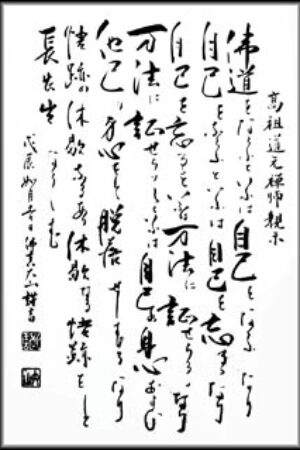 高祖道元禅師親示
佛道をならふといふは自己をならふなり
自己をならふといふは自己を忘るゝなり
自己を忘るゝといふは万法に証せらるゝなり
万法に証せらるゝといふは自己の身心および
他己の身心をして脱落せしむるなり
悟跡の休歇なるあり休歇なる悟跡をして
長長出ならしむ
戊辰如月吉日